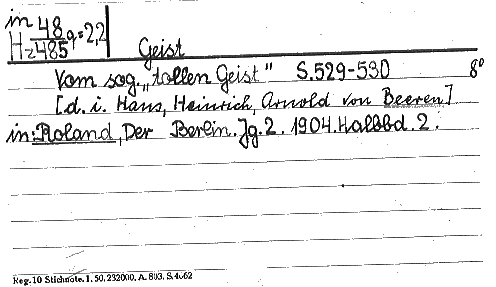 in 48 g=2,2
Hz 485
Geist
Vom sog. „tollen Geist“ S.529-530 8°
[d. i. Hans, Heinrich, Arnold von Beeren]
in: Roland, Der Berlin. Jg. 2. 1904. Halbbd. 2.
Reg. 10 Stichnote. 1. 50. 232000. A. 803. S. 4062